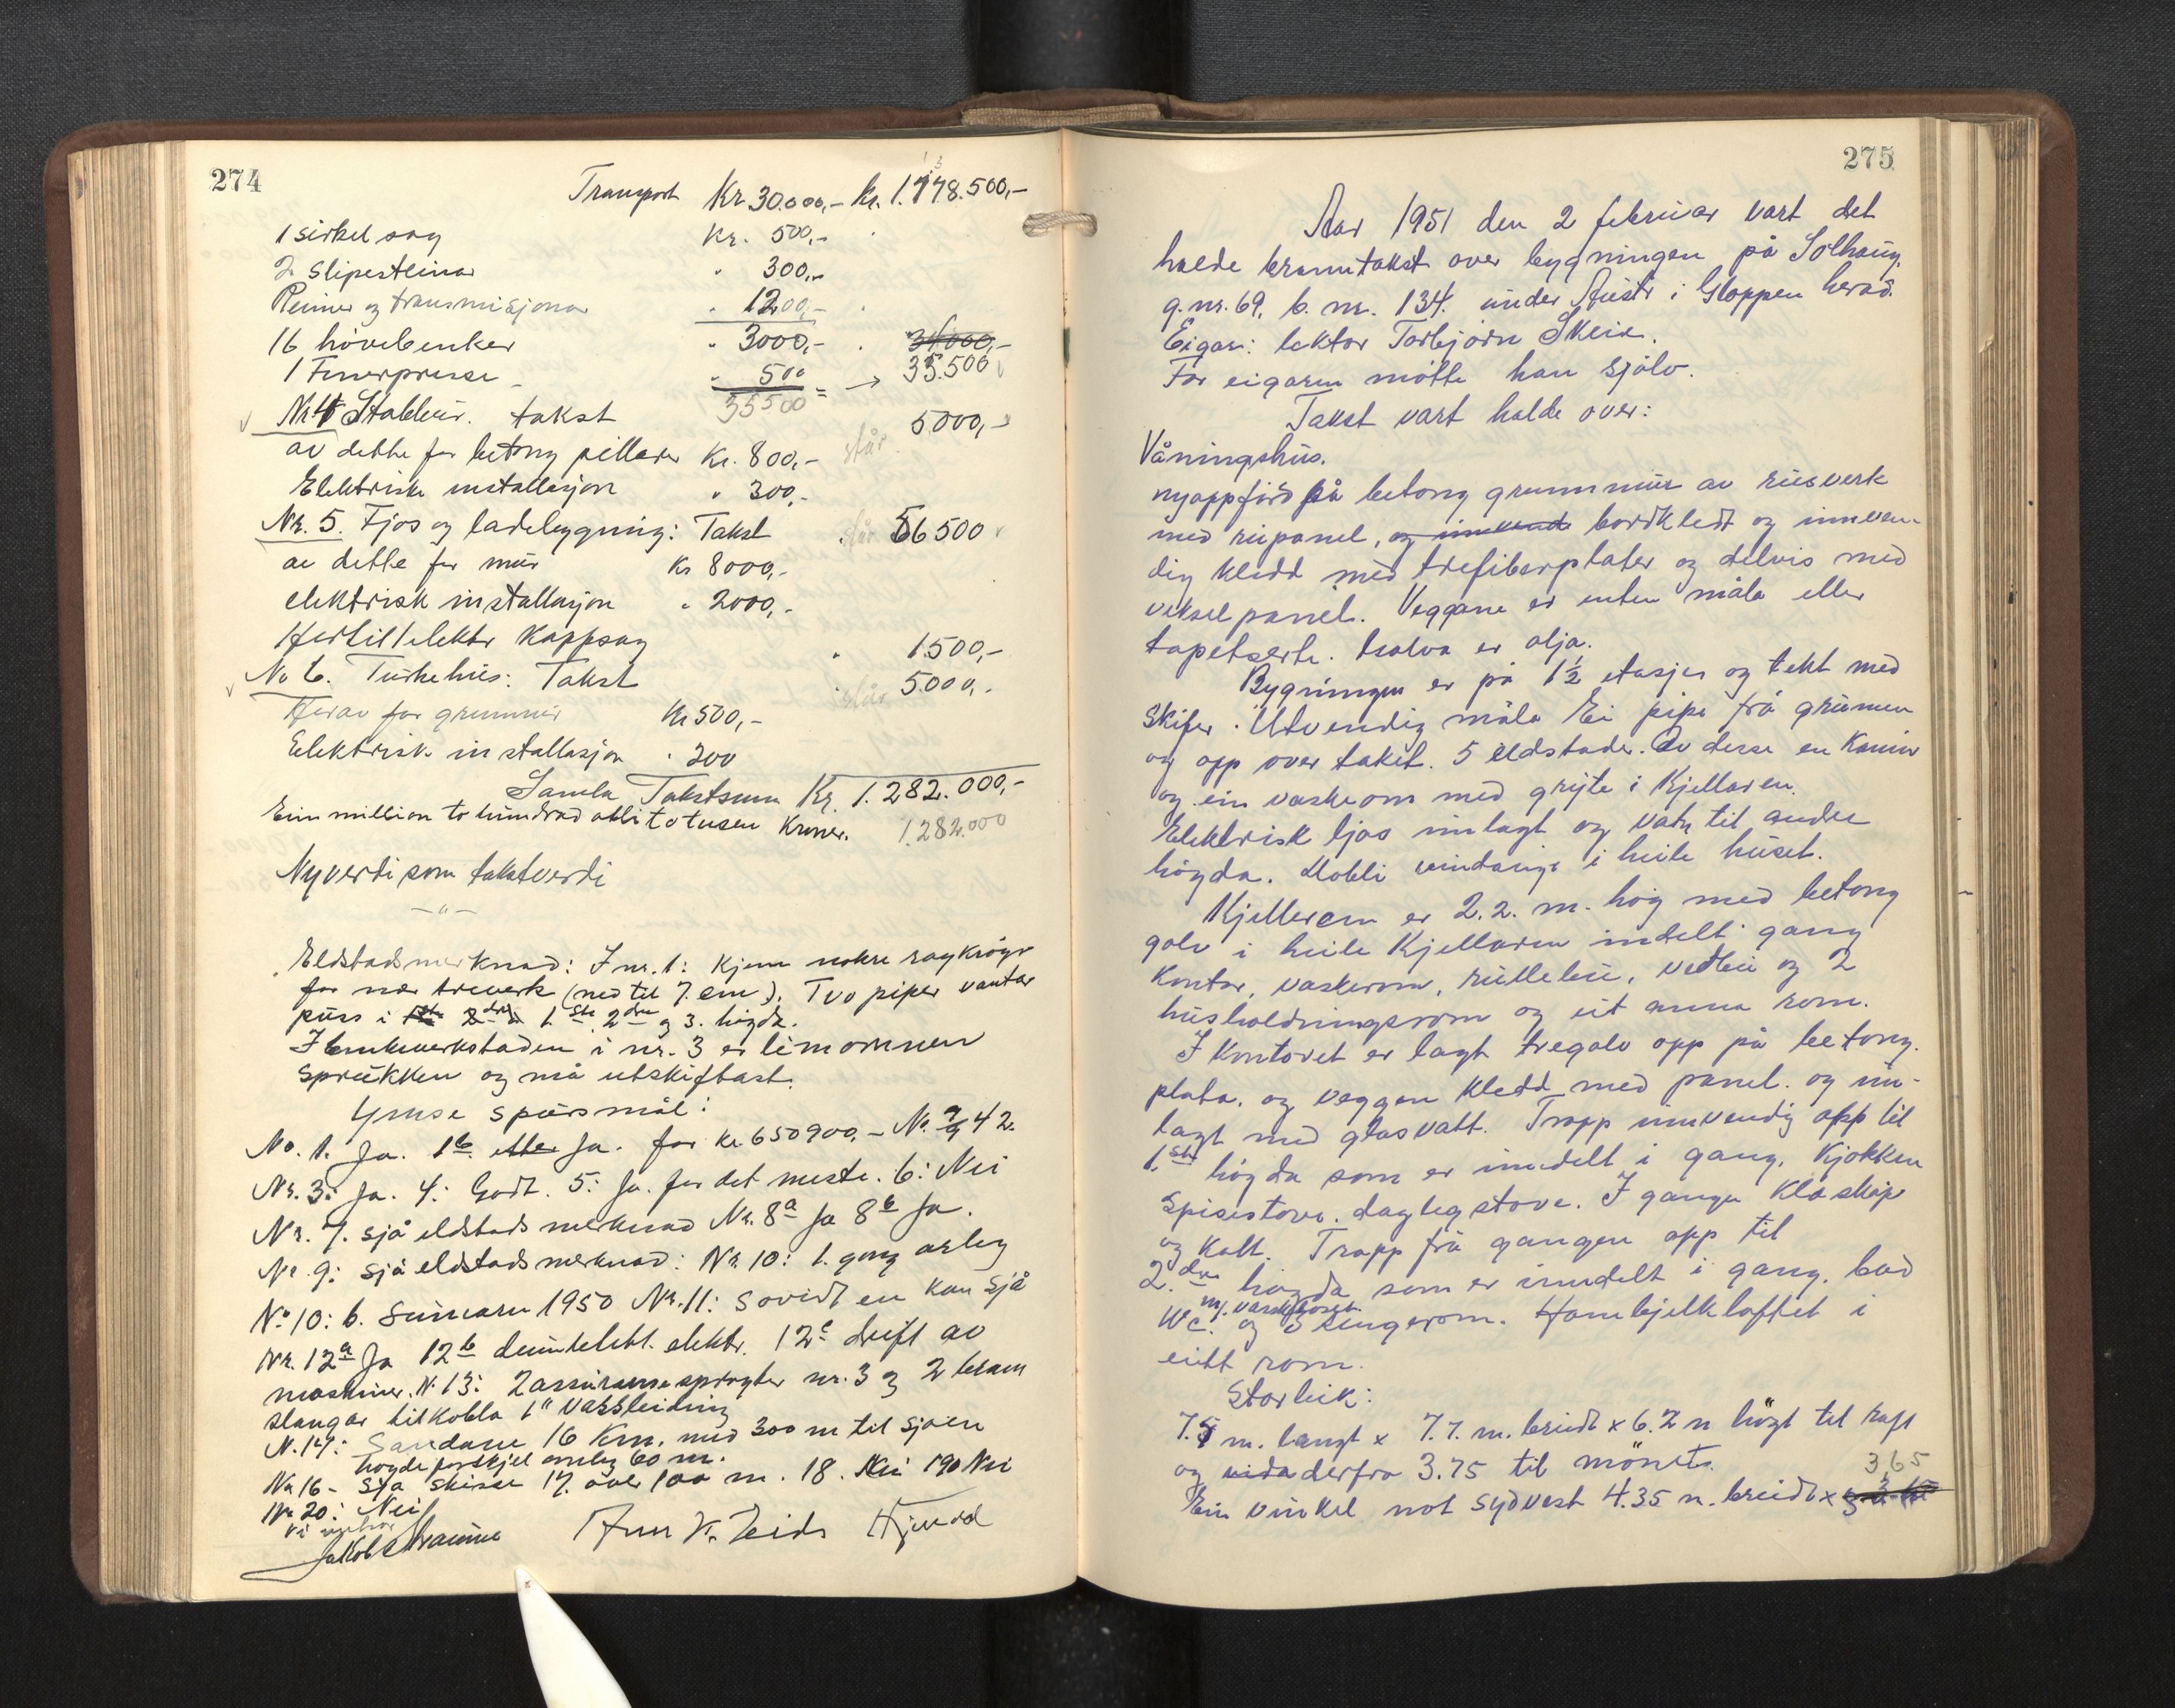 274
Transport Kr 30.000,- kr. 1.178.500,-
1 sirkelsag Kr. 500,-
2 Slipesteinar " 300,-
Reimer og transmisjonar " 1200,-
16 hövelbenker " 3000,- 34000,-
1 Finerpresse " 500 = → 33.500
35500
Nr 4 Stabbur. takst 5000,-
av dette for betong pillarer Kr. 800,- står
Elektrisk installasjon " 300,-
Nr. 5. Fjos og ladebygning: Takst står 56500
av dette for mur Kr 8000,-
elektrisk installasjon " 2000,-
Hertil 1 elektr kappsag " 1500,-
No 6. Turkehus: Takst står 5000,-
Herav for grunnmur Kr 500,-
Elektrisk installasjon " 200
Samla Takstsum Kr. 1.282.000,-
Ein million to hundrad åtti to tusen kroner. 1.282.000
Nyverdi som takstverdi
-"-
Eldstadsmerknad: I nr. 1: kjem nokre röykrøyr
for nær treverk (ned til 7. cm). Tvo piper vantar
puss i 1ste 2dre 1.ste 2dre og 3. högda.
I benkverkstaden i nr. 3 er limomnen
sprukken og må utskiftast.
Ymse spursmål:
No. 1. Ja. 1b. etter Ja. for kr 650900,- No. 2/9 42.
Nr. 3: Ja. 4: Godt. 5: Ja. for det meste. 6: Nei
Nr. 7. sjå eldstads merknad Nr. 8a Ja 8b Ja.
No 9: sjå eldstadsmerknad: Nr 10: 1. gong årleg
No 10: b. sumaren 1950 Nr. 11: Sovidt en kan sjå
Nr. 12a Ja 12b elektr. 12c drift av
maskiner. N. 13: 2 assuransesprøyter nr. 3 og 2 brann
slangar tilkobla 1" vassleidning
N. 14: Sandane 16 km. med 300 m til sjøen
högdeforskjel omleg 60 m.
No 16 - Sjå skisse 17. over 100 m. 18. Nei 190 Nei
No 20: Nei
Jakob Straume
275
Aar 1951 den 2 februar vart det
halde branntakst over bygningen på Solhaug,
g.nr. 69, b. nr. 134. under Austr i Gloppen herad.
Eigar: lektor Torbjørn Skeie.
For eigaren møtte han sjølv.
Takst vart halde over:
Våningshus.
nyoppförd på betong grunnmur av reisverk
med rupanel, og innvend bordkledt og innven-
dig kledd med trefiberplater og delvis med
veksel panel. Veggane er enten måla eller
tapetserte. Golva er olja.
Bygningen er på 1½ etasjer og tekt med
skifer. Utvendig måla Ei pipe frå grunnen
og opp over taket. 5 eldstader. Av desse en kamin
og ein vaskeomn med gryte i Kjellaren.
Elektrisk ljos innlagt og vatn til andre
högda. Dobli vindaugo i heile huset.
Kjelleren er 2.2. m. høg med betong
golv i heile Kjellaren inndelt gang
kontor, vaskerom, rullebu, vedbu og 2
husholdningsrom og eit anna rom.
I kontoret er lagt tregolv opp på betong-
plata, og veggen kledd med panel. og inn-
lagt med glasvatt. Trapp innvendig opp til
1.ste högda som er inndelt i gang, Kjøkken
spisestove. daglegstove. I gangen kleskåp
og kott. Trapp frå gangen opp til
2.dre høgda som er inndelt i gang, bad
m/. vannklosett
Wc. og 3 sengerom. Hanebjelkloftet i
eitt rom.
Storleik:
7.5 m. langt x 7.7. m. breidt x 6.2 m högt til raft
og vida derfra 3.75 til mönets. 3,65
Ein vinkel mot sydvest 4.35 m. breidt x